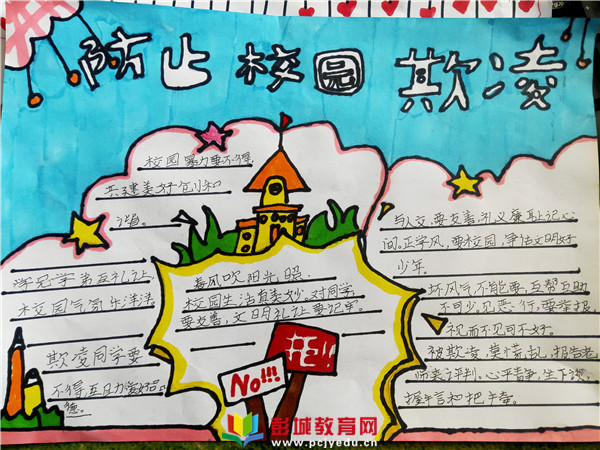 防止校园欺凌
校园暴力要不得
共建美好向和
谐。
学兄学弟互礼让
校园气氛乐洋洋
欺凌同学要
不得,互助友爱好品
德。
春风吹阳光照
校园生活真美妙。对同学
要友善,文明礼让要记牢。
No!!!
与人交,要友善,礼义廉耻记心
间。正学风,要校园,争做文明好
少年。
坏风气不能要,互帮互助
不可少,见恶行,要举报
视而不见可不好。
被欺凌,莫慌乱,报告老
师来评判。心平静,坐下谈,
握手言和把手牵。
彭城教育网
www.pcjyedu.cn